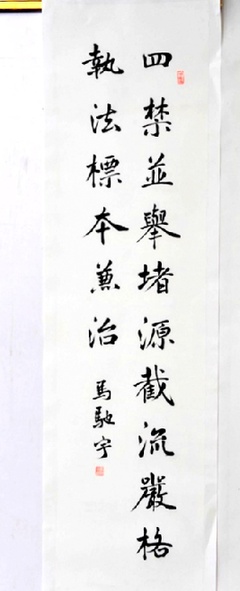 四禁並舉堵源截流嚴格
執法標本兼治
馬馳宇